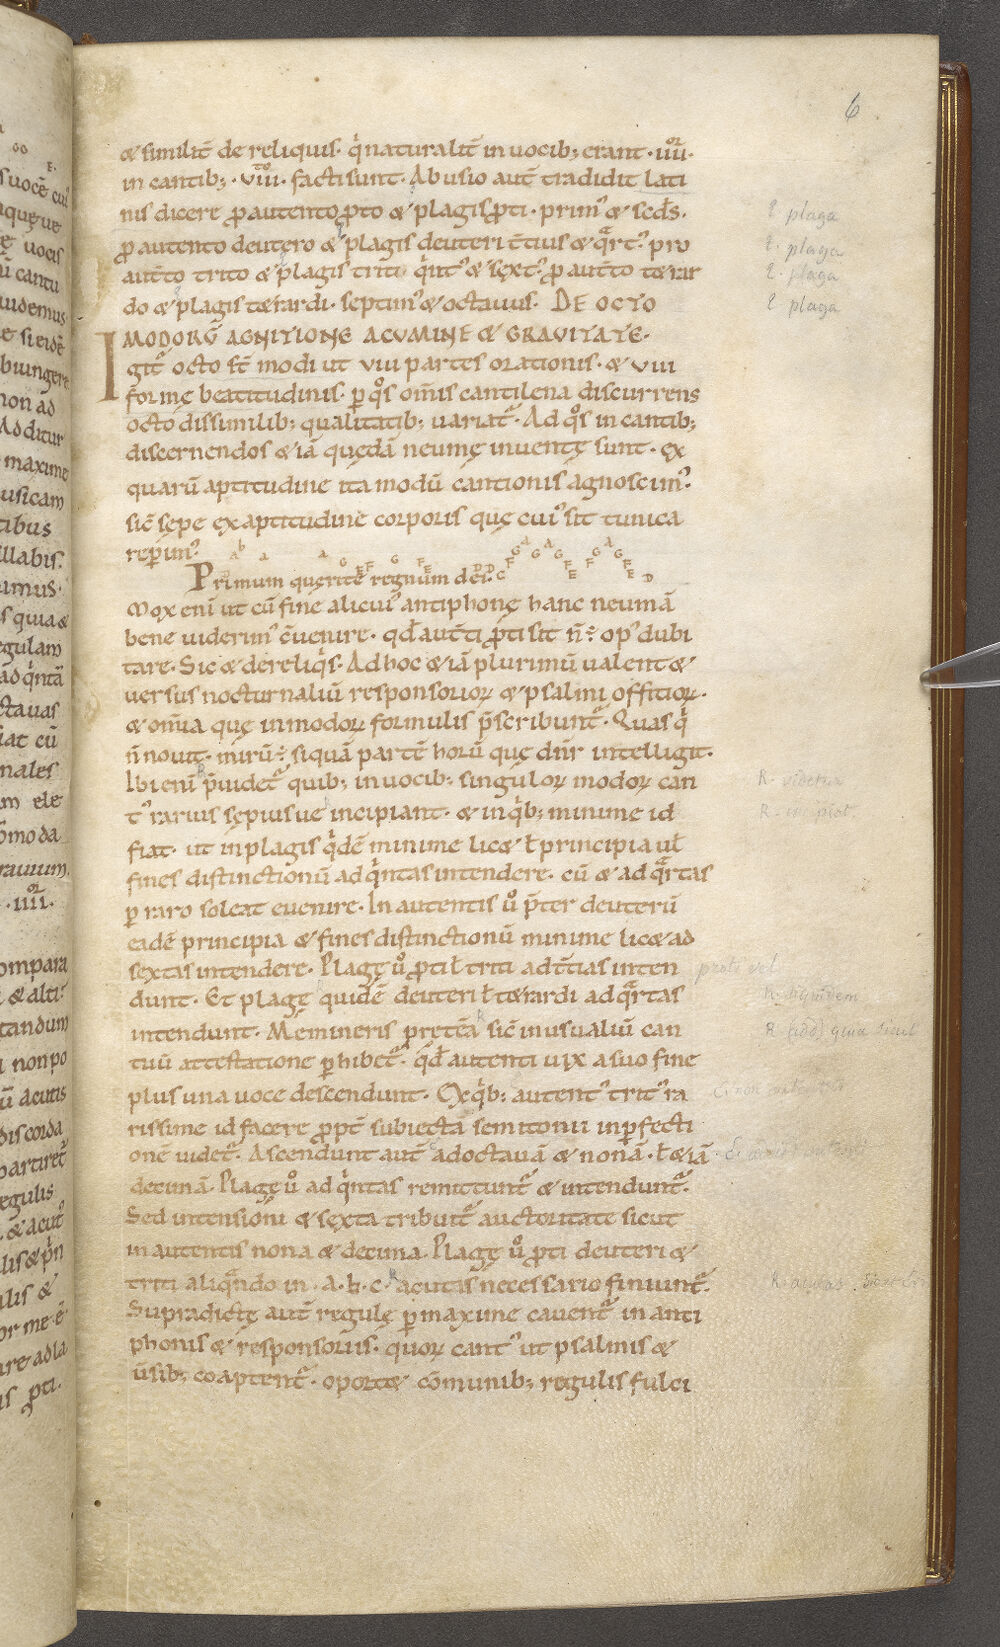 6
& similit̄ de reliquis· q̇ naturalit̄ in uocib; erant· iiii^or·
in cantib;· viii^to· facti sunt· Ab usio aut̄ tradidit lati
nis dicere ꝓ autento ꝓto & plagis ꝓti· prim᾿ & scd̄s·
ꝓ autento deutero & plagis deuteri t̄cius & q̄rt᾿· pro
aut̄to trito & plagis triti q̇nt᾿ & sext᾿· ꝓ aut̄to t&rar
do & plagis t&rardi· septim᾿ & octauus· DE OCTO
MODORŪ AGNITIONE ACUMINE & GRAVITATE·
Igit᾿ octo st̄ modi ut viii partes orationis· & viii
formę beatitudinis· ꝑ q°s om̄is cantilena discurrens
octo dissimilib; qualitatib; uariat᾿· Ad q°s in cantib;
discernendos & iā quędā neumę inuentę sunt· ex
quarū aptitudine ita modū cantionis agnoscim᾿·
sic̄ sepe ex aptitudine corporis quę cui᾿ sit tunica
repim᾿·
Primum quęrite regnum dei·
Mox eni ut cū fine alicui᾿ antiphonę hanc neumā
bene uiderim᾿ c̄uenire· qd̄ aut̄ti ꝓti sit n̄ : op᾿ dubi
tare· Sic & de reliq̇s· Ad hoc & iā plurimū ualent &
uersus nocturnaliū responsorioꝝ & psalmi offitioꝝ·
& om̄ia quę in modoꝝ formulis p̄scribunt᾿· Quas q̇
n̄ nouit· mirū : si quā partē horū quę dn̄r intelligit·
Ibi eni p̄uidet᾿ quib; in uocib; singuloꝝ modoꝝ can
t᾿ rarius sępius ue incipiant· & in q̇b; minime id
fiat· ut in plagis q̇dē minime lic& ł principia uł
fines distinctionū ad q̇ntas intendere· cū & ad q̄rtas
ꝑ raro soleat euenire· In autentis u° p̄ter deuterū
eadē principia & fines distinctionū minime lic& ad
sextas intendere· Plagę u° ꝓti ł triti ad t̄tias inten
dunt· Et plagę quidē deuteri ł t&rardi ad q̄rtas
intendunt· Memineris pret̄ea sic̄ in usualiū can
tuū attestatione ꝑhibet᾿· qd̄ autenti uix a suo fine
plus una uoce descendunt· Ex q̇b; autent᾿ trit᾿ ra
rissime id facere ꝓpt̄ subiectā semitonii inꝑfecti
onē uidet᾿· Ascendunt aut̄ ad octauā & nonā· ł & iā
decimā· Plagę u° ad q̇ntas remittunt᾿ & intendunt᾿·
Sed intensioni & sexta tribuit᾿ auctoritate sicut
in autentis nona & decima· Plagę u° ꝓti deuteri &
triti aliq̄ndo in· a· b· c· acutis necessario finiunt᾿·
Supradictę aut̄ regulę ꝑmaxime cauent᾿ in anti
phonis & responsoriis· quoꝝ cant᾿ ut psalmis &
ūsib; coaptent᾿· oport& cōmunib; regulis fulci
plaga
plaga
plaga
plaga